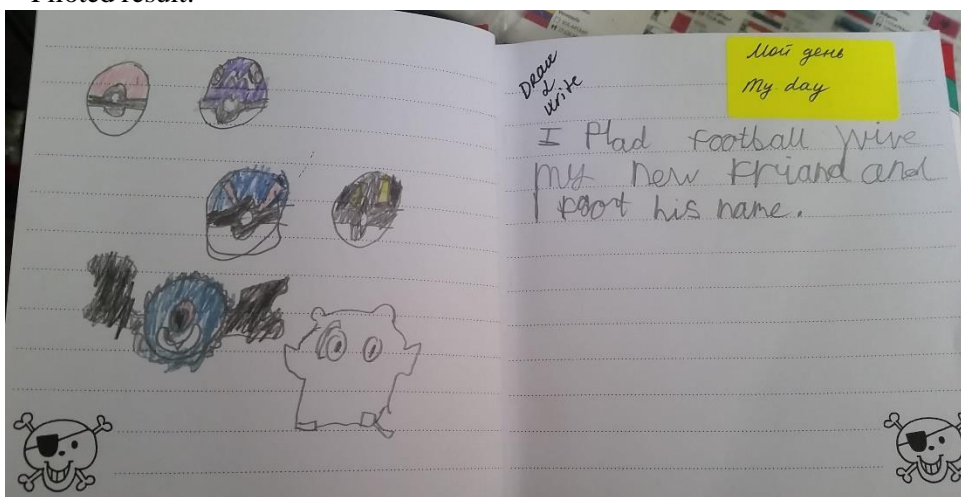 result:
Draw
&
write
Мой день
My day
I Plad football wive
my new friand and
I his name.